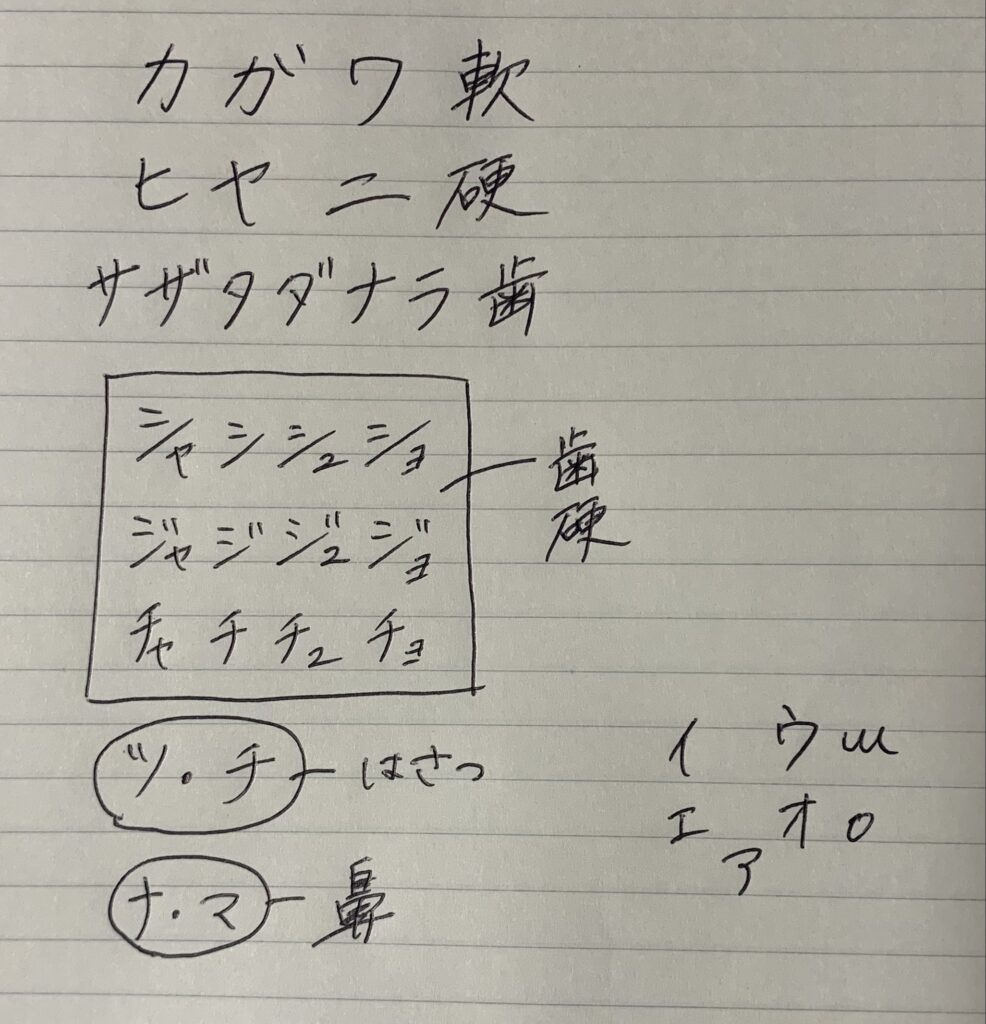 カガワ軟
ヒヤニ硬
サザタダナラ歯
シャ シ シュ ショ
ジャ ジ ジュ ジョ
チャ チ チュ チョ
歯
硬
ツ・チ はさつ
ナ・マ 鼻
イ ウ ɯ
エ オ o
ア